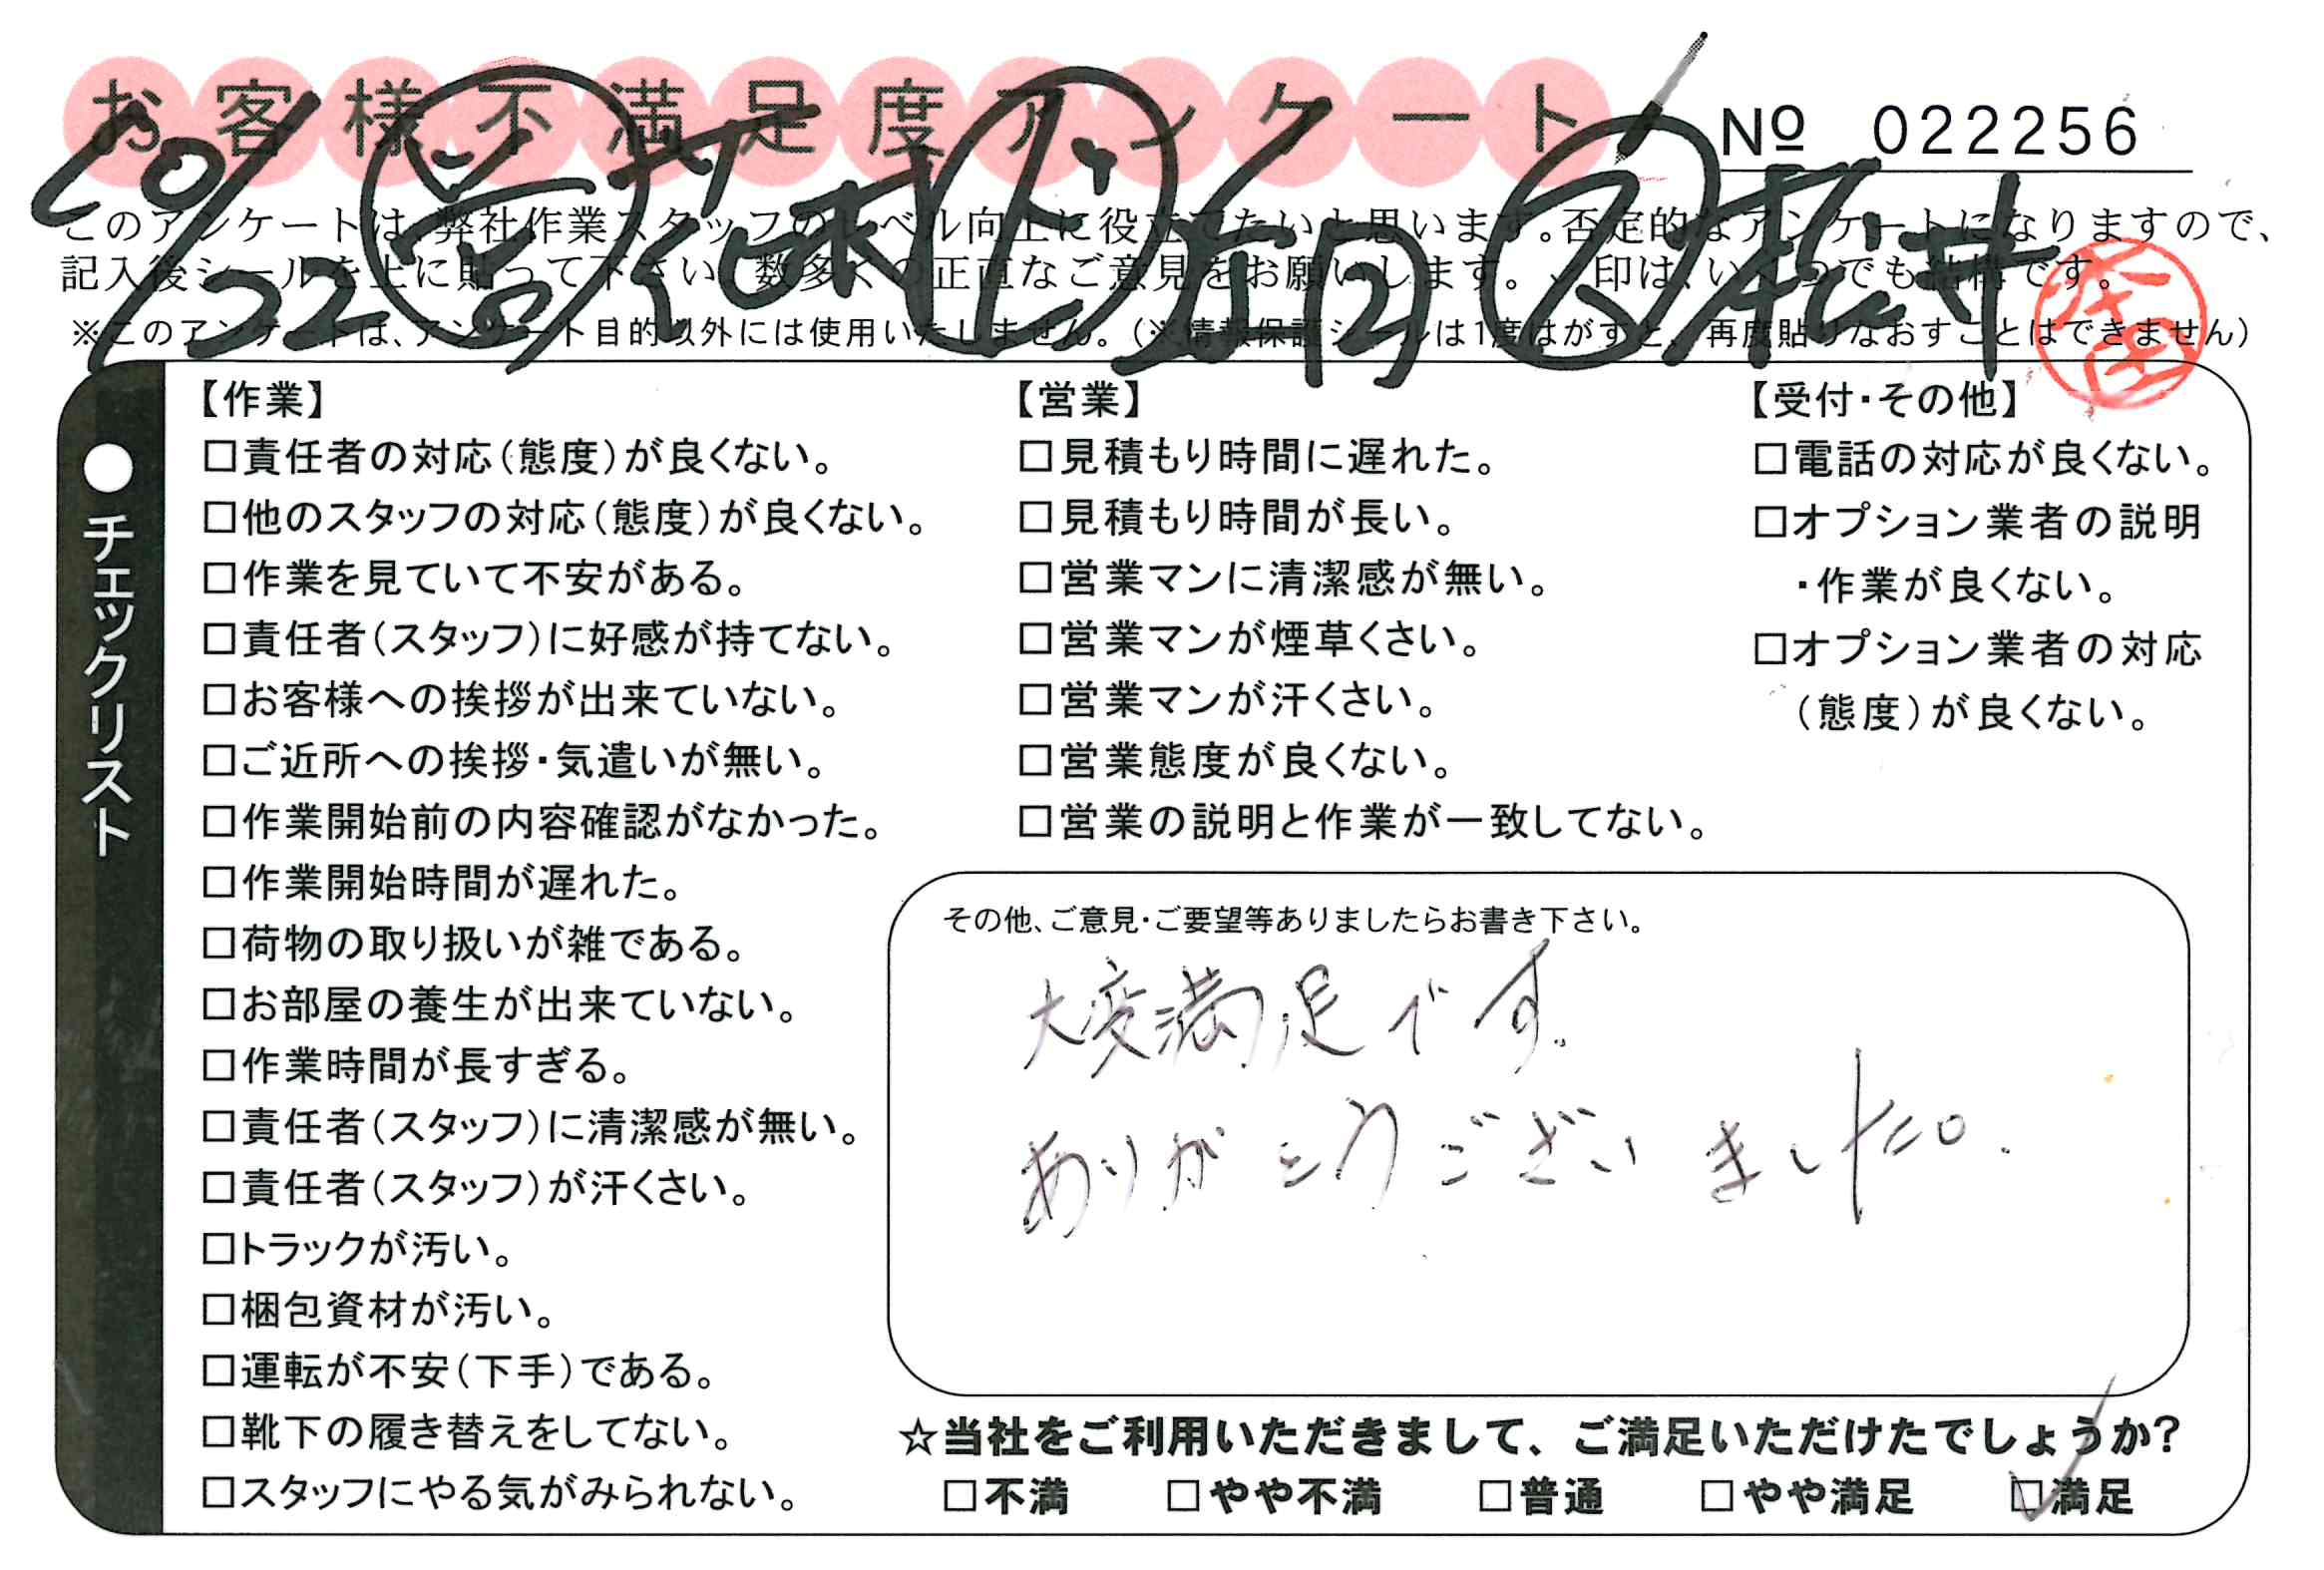 お客様不満足度アンケート
№ 022256
10/22 営 竹村 L 産円 2 松井
このアンケートは、弊社作業スタッフのレベル向上に役立てたいと思います。否定的なアンケートになりますので、
記入後シールを上に貼って下さい。数多くの正直なご意見をお願いします。✓印は、いくつでも結構です。
※このアンケートは、アンケート目的以外には使用いたしません。(※情報保護シールは1度はがすと、再度貼りなおすことはできません)
●チェックリスト
【作業】
□責任者の対応(態度)が良くない。
□他のスタッフの対応(態度)が良くない。
□作業を見ていて不安がある。
□責任者(スタッフ)に好感が持てない。
□お客様への挨拶が出来ていない。
□ご近所への挨拶・気遣いが無い。
□作業開始前の内容確認がなかった。
□作業開始時間が遅れた。
□荷物の取り扱いが雑である。
□お部屋の養生が出来ていない。
□作業時間が長すぎる。
□責任者(スタッフ)に清潔感が無い。
□責任者(スタッフ)が汗くさい。
□トラックが汚い。
□梱包資材が汚い。
□運転が不安(下手)である。
□靴下の履き替えをしてない。
□スタッフにやる気がみられない。
【営業】
□見積もり時間に遅れた。
□見積もり時間が長い。
□営業マンに清潔感が無い。
□営業マンが煙草くさい。
□営業マンが汗くさい。
□営業態度が良くない。
□営業の説明と作業が一致してない。
【受付・その他】
□電話の対応が良くない。
□オプション業者の説明
・作業が良くない。
□オプション業者の対応
(態度)が良くない。
その他、ご意見・ご要望等ありましたらお書き下さい。
大変満足です.
ありがとうございました。.
☆当社をご利用いただきまして、ご満足いただけたでしょうか?
□不満 □やや不満 □普通 □やや満足 ☑満足